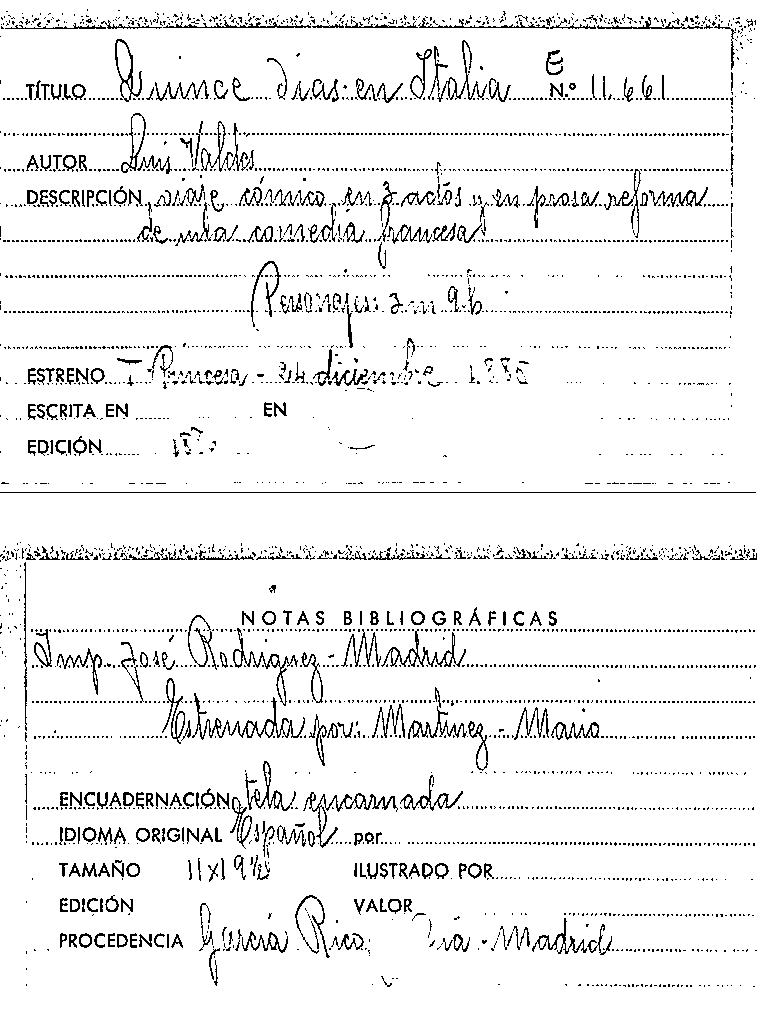 TÍTULO Quince días en Italia E N.º 11.661
AUTOR Luis Valdés
DESCRIPCIÓN viaje cómico en 3 actos y en prosa reforma
de una comedia francesa
Personajes: 3 m 9 h
ESTRENO T. Princesa - 24 diciembre 1885
ESCRITA EN EN
EDICIÓN
NOTAS BIBLIOGRÁFICAS
Imp. José Rodriguez - Madrid
Estrenada por: Martínez - Mario
ENCUADERNACIÓN tela encarnada
IDIOMA ORIGINAL Español por
TAMAÑO 11x19½ ILUSTRADO POR
EDICIÓN VALOR
PROCEDENCIA García Rico - Madrid